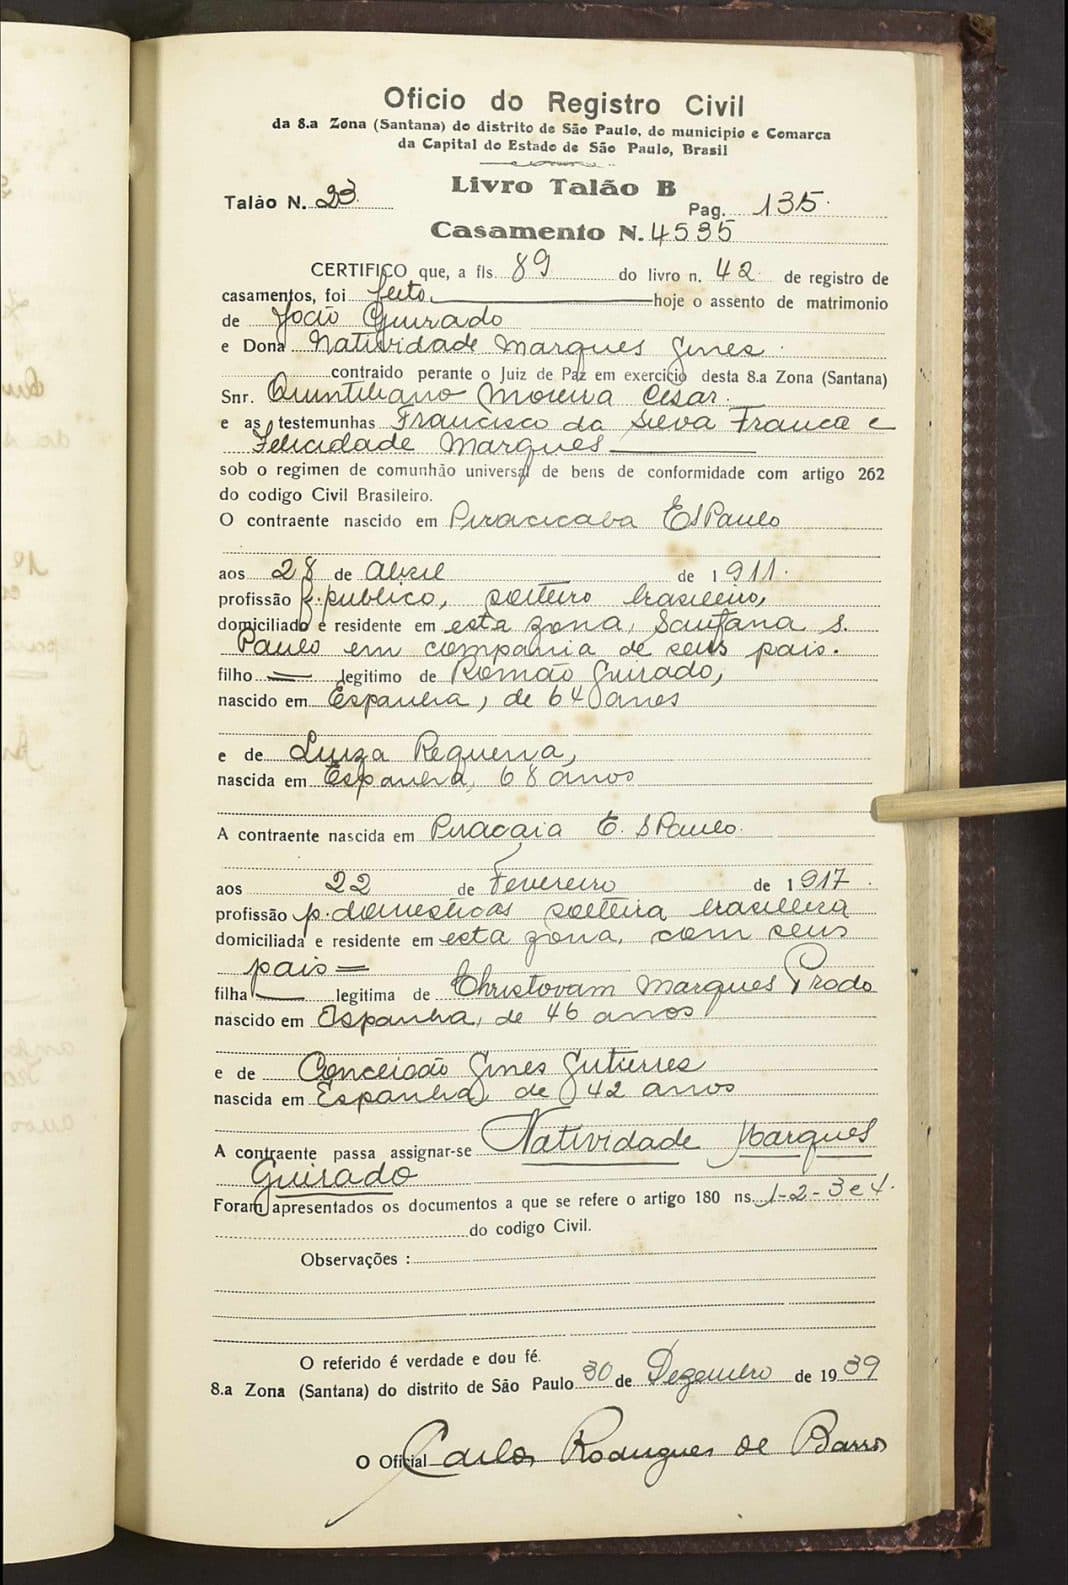 Oficio do Registro Civil
da 8.a Zona (Santana) do distrito de São Paulo, do municipio e Comarca
da Capital do Estado de São Paulo, Brasil
Livro Talão B
Talão N. 23 Pag. 135
Casamento N. 4535
CERTIFICO que, a fls. 89 do livro n. 42 de registro de
casamentos, foi feito hoje o assento de matrimonio
de João Guirado
e Dona Natividade Marques Gines
contraido perante o Juiz de Paz em exercicio desta 8.a Zona (Santana)
Snr. Quintiliano Moreira Cesar.
e as testemunhas Francisco da Silva Franca e
Felicidade Marques
sob o regimen de comunhão universal de bens de conformidade com artigo 262
do codigo Civil Brasileiro.
O contraente nascido em Piracicaba E S Paulo
aos 28 de Abril de 1911.
profissão f. publico, solteiro brasileiro,
domiciliado e residente em esta zona, Santana S.
Paulo em companhia de seus pais.
filho legitimo de Romão Guirado,
nascido em Espanha, de 64 anos
e de Luiza Requena,
nascida em Espanha, 68 anos
A contraente nascida em Piracaia E. S Paulo.
aos 22 de Fevereiro de 1917.
profissão p. domesticas solteira brasileira
domiciliada e residente em esta zona, com seus
pais =
filha legitima de Christovam Marques Prado
nascido em Espanha, de 46 anos
e de Conceição Gines Gutierres
nascida em Espanha, de 42 anos
A contraente passa assignar-se Natividade Marques
Guirado
Foram apresentados os documentos a que se refere o artigo 180 ns. 1-2-3 e 4.
do codigo Civil.
Observações :
O referido é verdade e dou fé.
8.a Zona (Santana) do distrito de São Paulo 30 de Dezembro de 1939
O Oficial Carlos Rodrigues de Barros